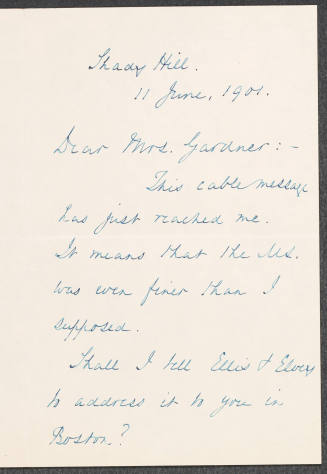 Shady Hill.
11 June, 1901.
Dear Mrs. Gardner: -
This cable message
has just reached me.
It means that the MS.
was even finer than I
supposed.
Shall I tell Ellis & Elvey
to address it to you in
Boston?